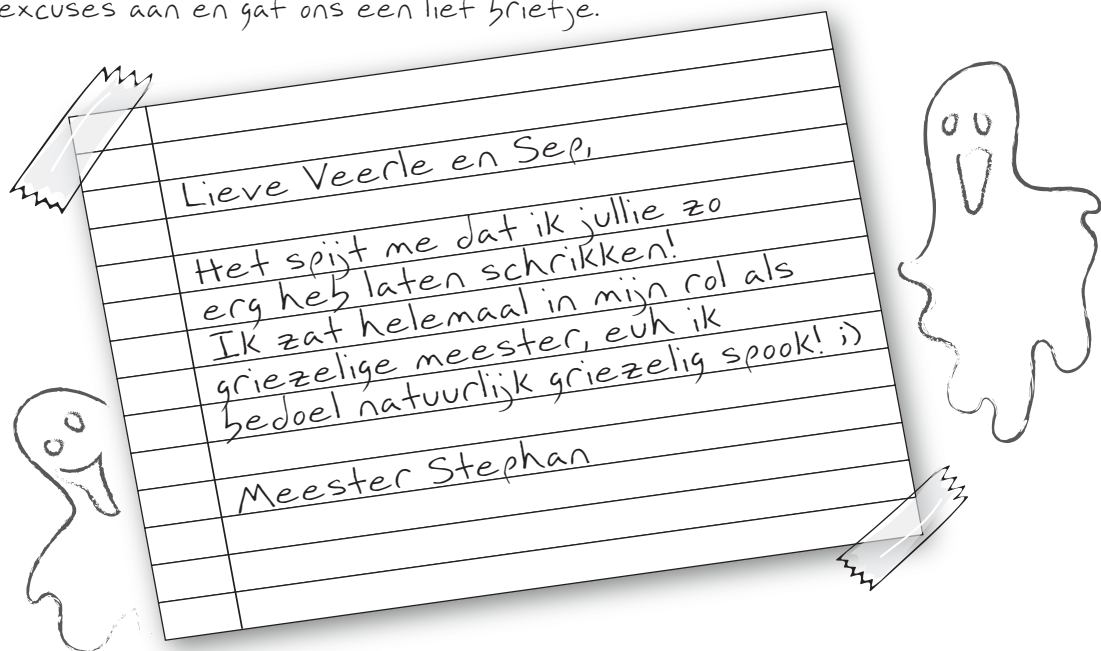 excuses aan en gaf ons een lief briefje.
Lieve Veerle en Sep,
Het spijt me dat ik jullie zo
erg heb laten schrikken!
Ik zat helemaal in mijn rol als
griezelige meester, euh ik
bedoel natuurlijk griezelig spook! ;)
Meester Stephan